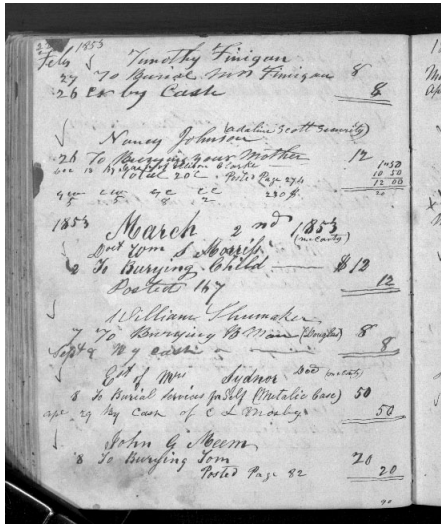 Feb 1853 Timothy Finigan
27 To Burial Mrs Finigan 8
28 Cr by Cash 8
Nancy Johnson (Adaline Scott Security)
26 To Burying your Mother 12
1.50
10 50
Total 20 Posted Page 274 12 00
1853 March 2nd 1853
Doct Wm S Morriss (McCarty)
2 To Burying Child $12
Posted 167 12
William Shumaker
7 To Burying B Man (Douglas) 8
Sept 9 By cash 8
Est of Mrs Sydnor Doc (McCarty)
8 To Burial Services for Self (Metalic Case) 50
Apr 29 By Cash of C L Mosby 50
John G Meem
8 To Burying Tom 20
Posted Page 82 20